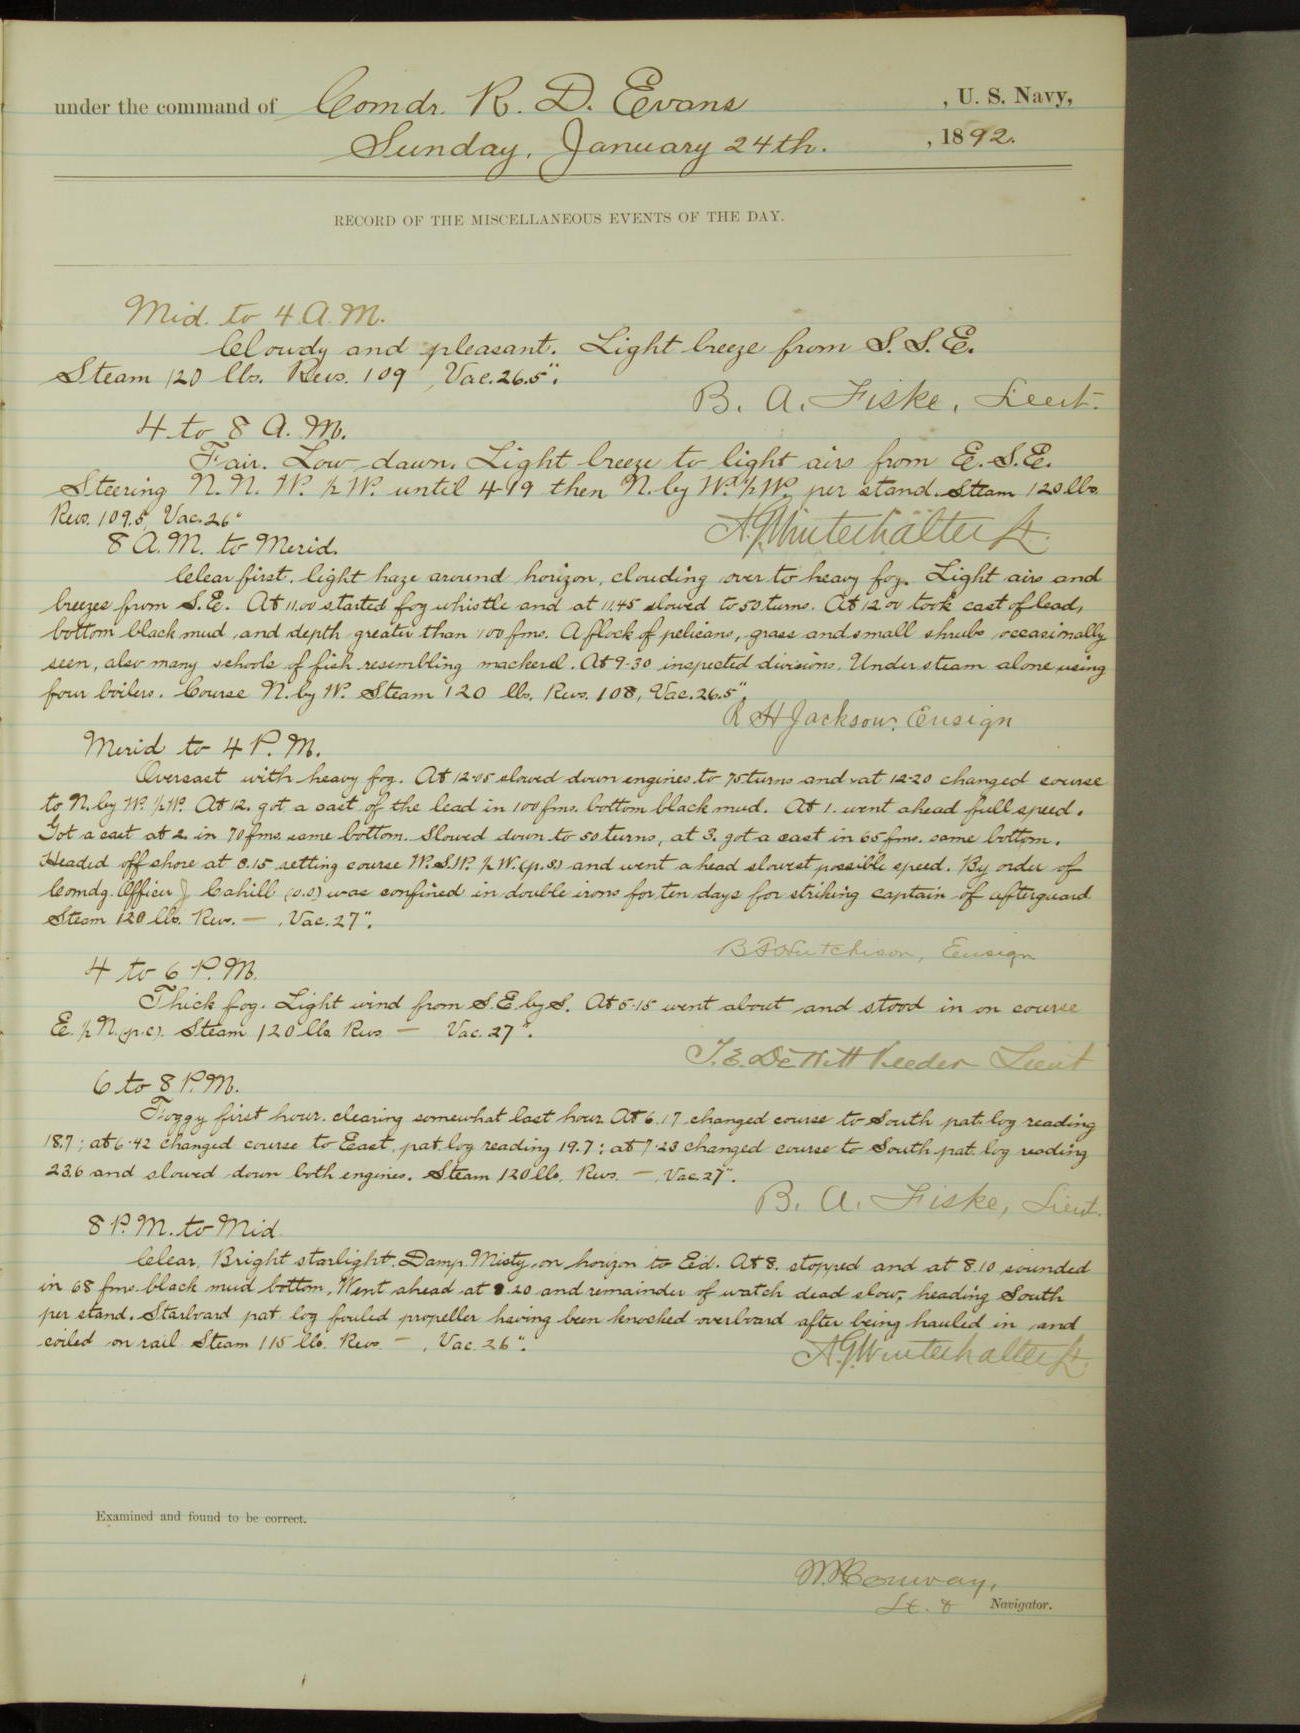 under the command of Comdr. R. D. Evans , U. S. Navy,
Sunday, January 24th. , 1892.
RECORD OF THE MISCELLANEOUS EVENTS OF THE DAY.
Mid. to 4 A.M.
Cloudy and pleasant. Light breeze from S. S. E.
Steam 120 lbs. Revs. 109, Vac. 26.5".
B. A. Fiske, Lieut.
4 to 8 A. M.
Fair. Low dawn. Light breeze to light airs from E. S.E.
Steering N. N. W. ½ W. until 4-19 then N. by W. ½ W. per stand. Steam 120 lbs.
Revs. 109.5, Vac. 26"
A.G. Winterhalter Lt.
8 A.M. to Merid.
Clear first, light haze around horizon, clouding over to heavy fog. Light airs and
breezes from S.E. At 11.00 started fog whistle and at 11.45 slowed to 50 turns. At 12 00 took cast of lead,
bottom black mud, and depth greater than 100 fms. A flock of pelicans, grass and small shrubs occasionally
seen, also many schools of fish resembling mackerel. At 9-30 inspected divisions. Under steam alone using
four boilers. Course N. by W. Steam 120 lbs. Revs. 108, Vac. 26.5".
R H Jackson, Ensign
Merid to 4 P. M.
Overcast with heavy fog. At 12-05 slowed down engines to 75 turns and at 12-20 changed course
to N. by W. ½ W. At 12. got a cast of the lead in 100 fms. bottom black mud. At 1. went ahead full speed.
Got a cast at 2. in 70 fms same bottom. Slowed down to 50 turns, at 3. got a cast in 65 fms. same bottom.
Headed off shore at 3.15 setting course W. S.W. ½ W. (p.s) and went ahead slowest possible speed. By order of
Comdg. Officer J Cahill (o.s) was confined in double irons for ten days for striking captain of afterguard
Steam 120 lbs. Rev. — , Vac. 27".
B F Hutchison, Ensign
4 to 6 P. M.
Thick fog. Light wind from S. E. by S. At 5-15 went about and stood in on course
E. ½ N. (p.c). Steam 120 lbs Revs — Vac. 27".
T. E. DeWitt Veeder Lieut
6 to 8 P.M.
Foggy first hour, clearing somewhat last hour. At 6.17 changed course to South pat. log reading
18.7; at 6-42 changed course to East, pat. log reading 19.7; at 7-23 changed course to South pat. log reading
23.6 and slowed down both engines. Steam 120 lbs, Revs. — , Vac. 27".
B. A. Fiske, Lieut.
8 P. M. to Mid.
Clear, Bright starlight. Damp. Misty on horizon to E'd. At 8. stopped and at 8.10 sounded
in 68 fms. black mud bottom. Went ahead at 8.20 and remainder of watch dead slow, heading South
per stand. Starboard pat log fouled propeller having been knocked overboard after being hauled in and
coiled on rail. Steam 115 lbs. Revs — , Vac. 26".
A.G. Winterhalter Lt.
Examined and found to be correct.
Conway,
Lt. & Navigator.